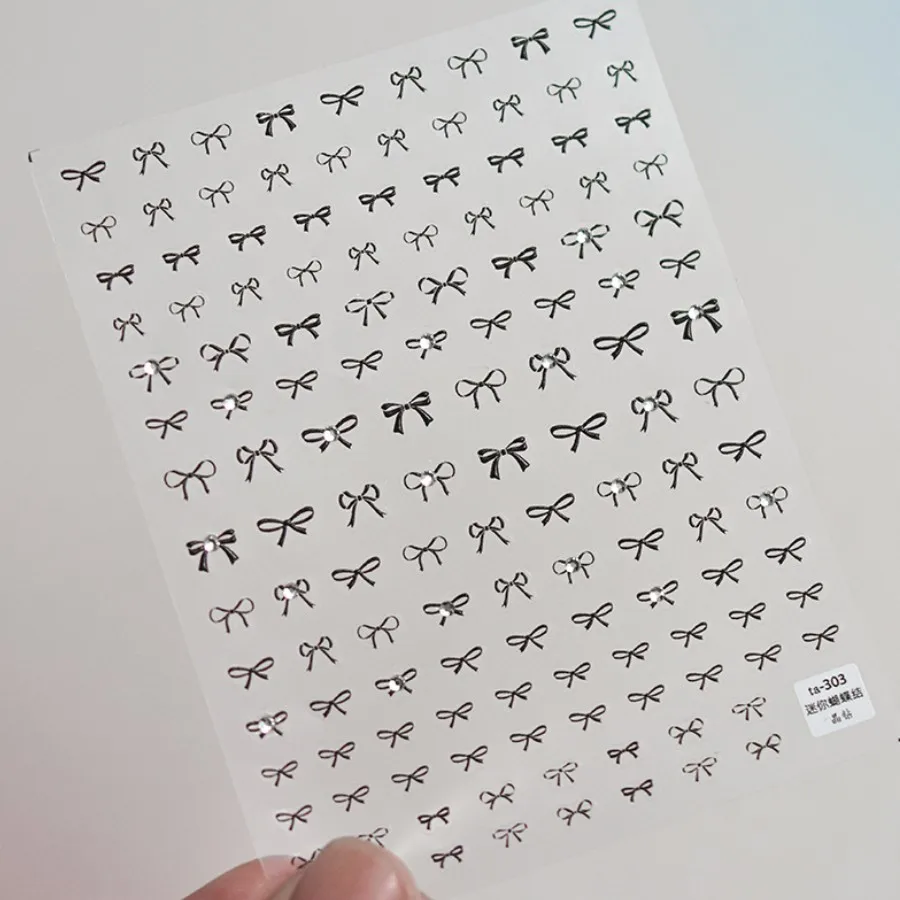 ta-303
迷你蝴蝶结
晶钻